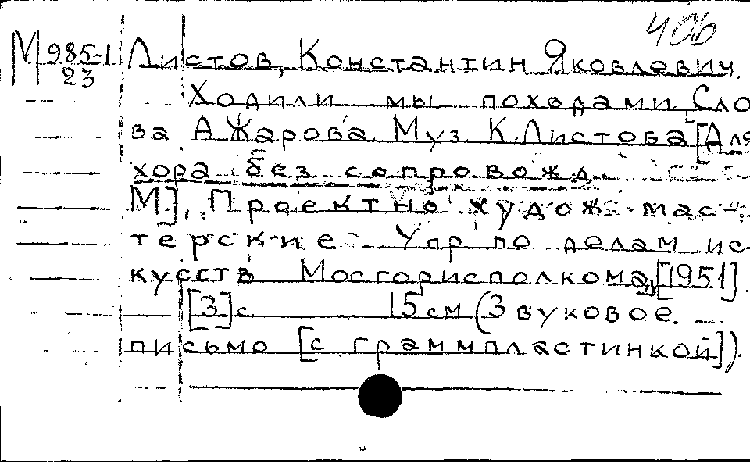 406
М 985-1/23
Листов, Константин Яковлевич.
Ходили мы походами. Сло
ва А. Жарова. Муз. К. Листова [Для
хора без сопровожд.
М], Проектно-худож. мас-
терские Упр. по делам ис-
кусств Мосгорисполкома, [1951].
[3] с. 15 см (Звуковое
письмо [с граммпластинкой]).